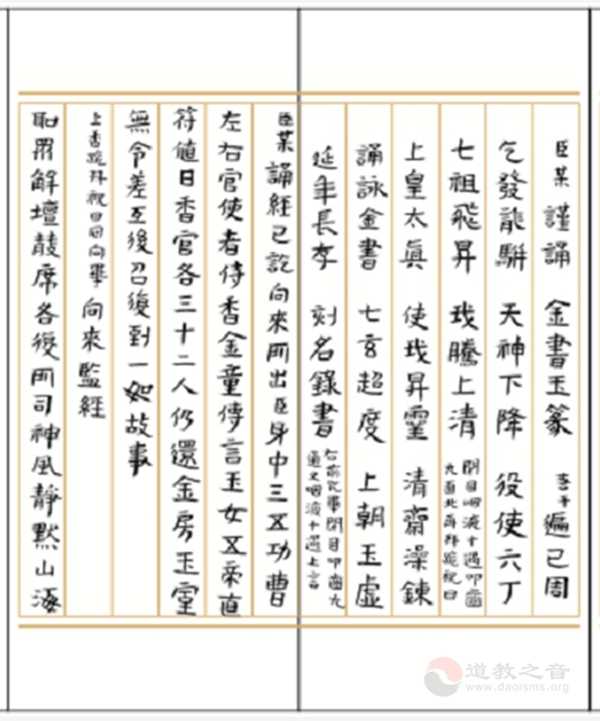 臣某謹誦 金書玉篆 若干遍已周
乞發龍駢 天神下降 役使六丁
七祖飛昇 我騰上清 閉目咽液十過叩齒九通北再拜跪祝曰
上皇太眞 使我昇靈 清齋澡鍊
誦詠金書 七玄超度 上朝玉虛
延年長存 刻名錄書 右前祝畢閉目叩齒九通又咽液十過上言
臣某誦經已訖向來所出臣身中三五功曹
左右官使者侍香金童傳言玉女五帝直
符值日香官各三十二人仍還金房玉室
無令差互後召復到一如故事
上香跪拜祝曰回向畢向來監經
聖眾解壇散席各復所司神風靜默山海
道教之音
www.daoisms.org